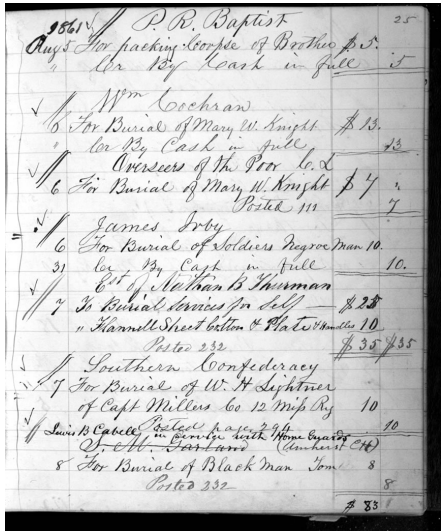 25
1861 P. R. Baptist
Aug 5 For packing Corpse of Brother $5.
" Cr By Cash in full 5
Wm Cochran
6 For Burial of Mary W. Knight $13.
" Cr By Cash in full 13
Overseers of the Poor C. L
6 For Burial of Mary W. Knight $7 "
Posted 111 7
James Irby
6 For Burial of Soldiers Negroe Man 10.
31 Cr By Cash in full 10.
Est of Nathan B Thurman
7 To Burial Services for Self — $25
" Flannell Sheet Cotton & Plate & Handles 10
Posted 232 $35 $35
Southern Confederacy
7 For Burial of W. H Lightner
of Capt Millers Co 12 Miss Rg 10
Posted page 294 10
Lewis B Cabell in service with Home Guards
S. M. Garland (Amherst CH)
8 For Burial of Black Man Tom 8
Posted 232 8
$83